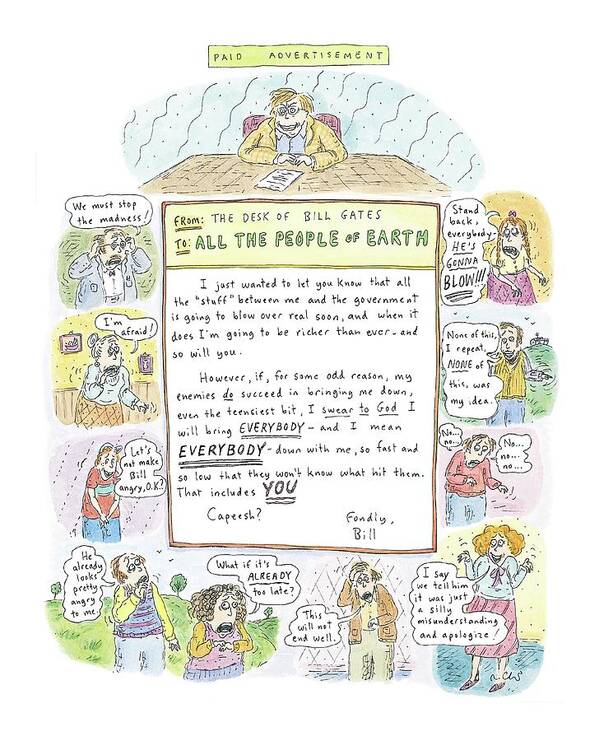 PAID ADVERTISEMENT
FROM: THE DESK OF BILL GATES
TO: ALL THE PEOPLE OF EARTH
I just wanted to let you know that all
the "stuff" between me and the government
is going to blow over real soon, and when it
does I'm going to be richer than ever - and
so will you.
However, if, for some odd reason, my
enemies do succeed in bringing me down,
even the teensiest bit, I swear to God I
will bring EVERYBODY - and I mean
EVERYBODY - down with me, so fast and
so low that they won't know what hit them.
That includes YOU
Capeesh?
Fondly,
Bill
We must stop
the madness!
Stand
back,
everybody-
HE'S
GONNA
BLOW!!!
I'm
afraid!
None of this,
I repeat,
NONE of
this, was
my idea.
Let's
not make
Bill
angry, O.K.?
No...
no...
No...
no...
no...
He
already
looks
pretty
angry
to me.
What if it's
ALREADY
too late?
This
will not
end well.
I say
we tell him
it was just
a silly
misunderstanding
and apologize!
R. Chst